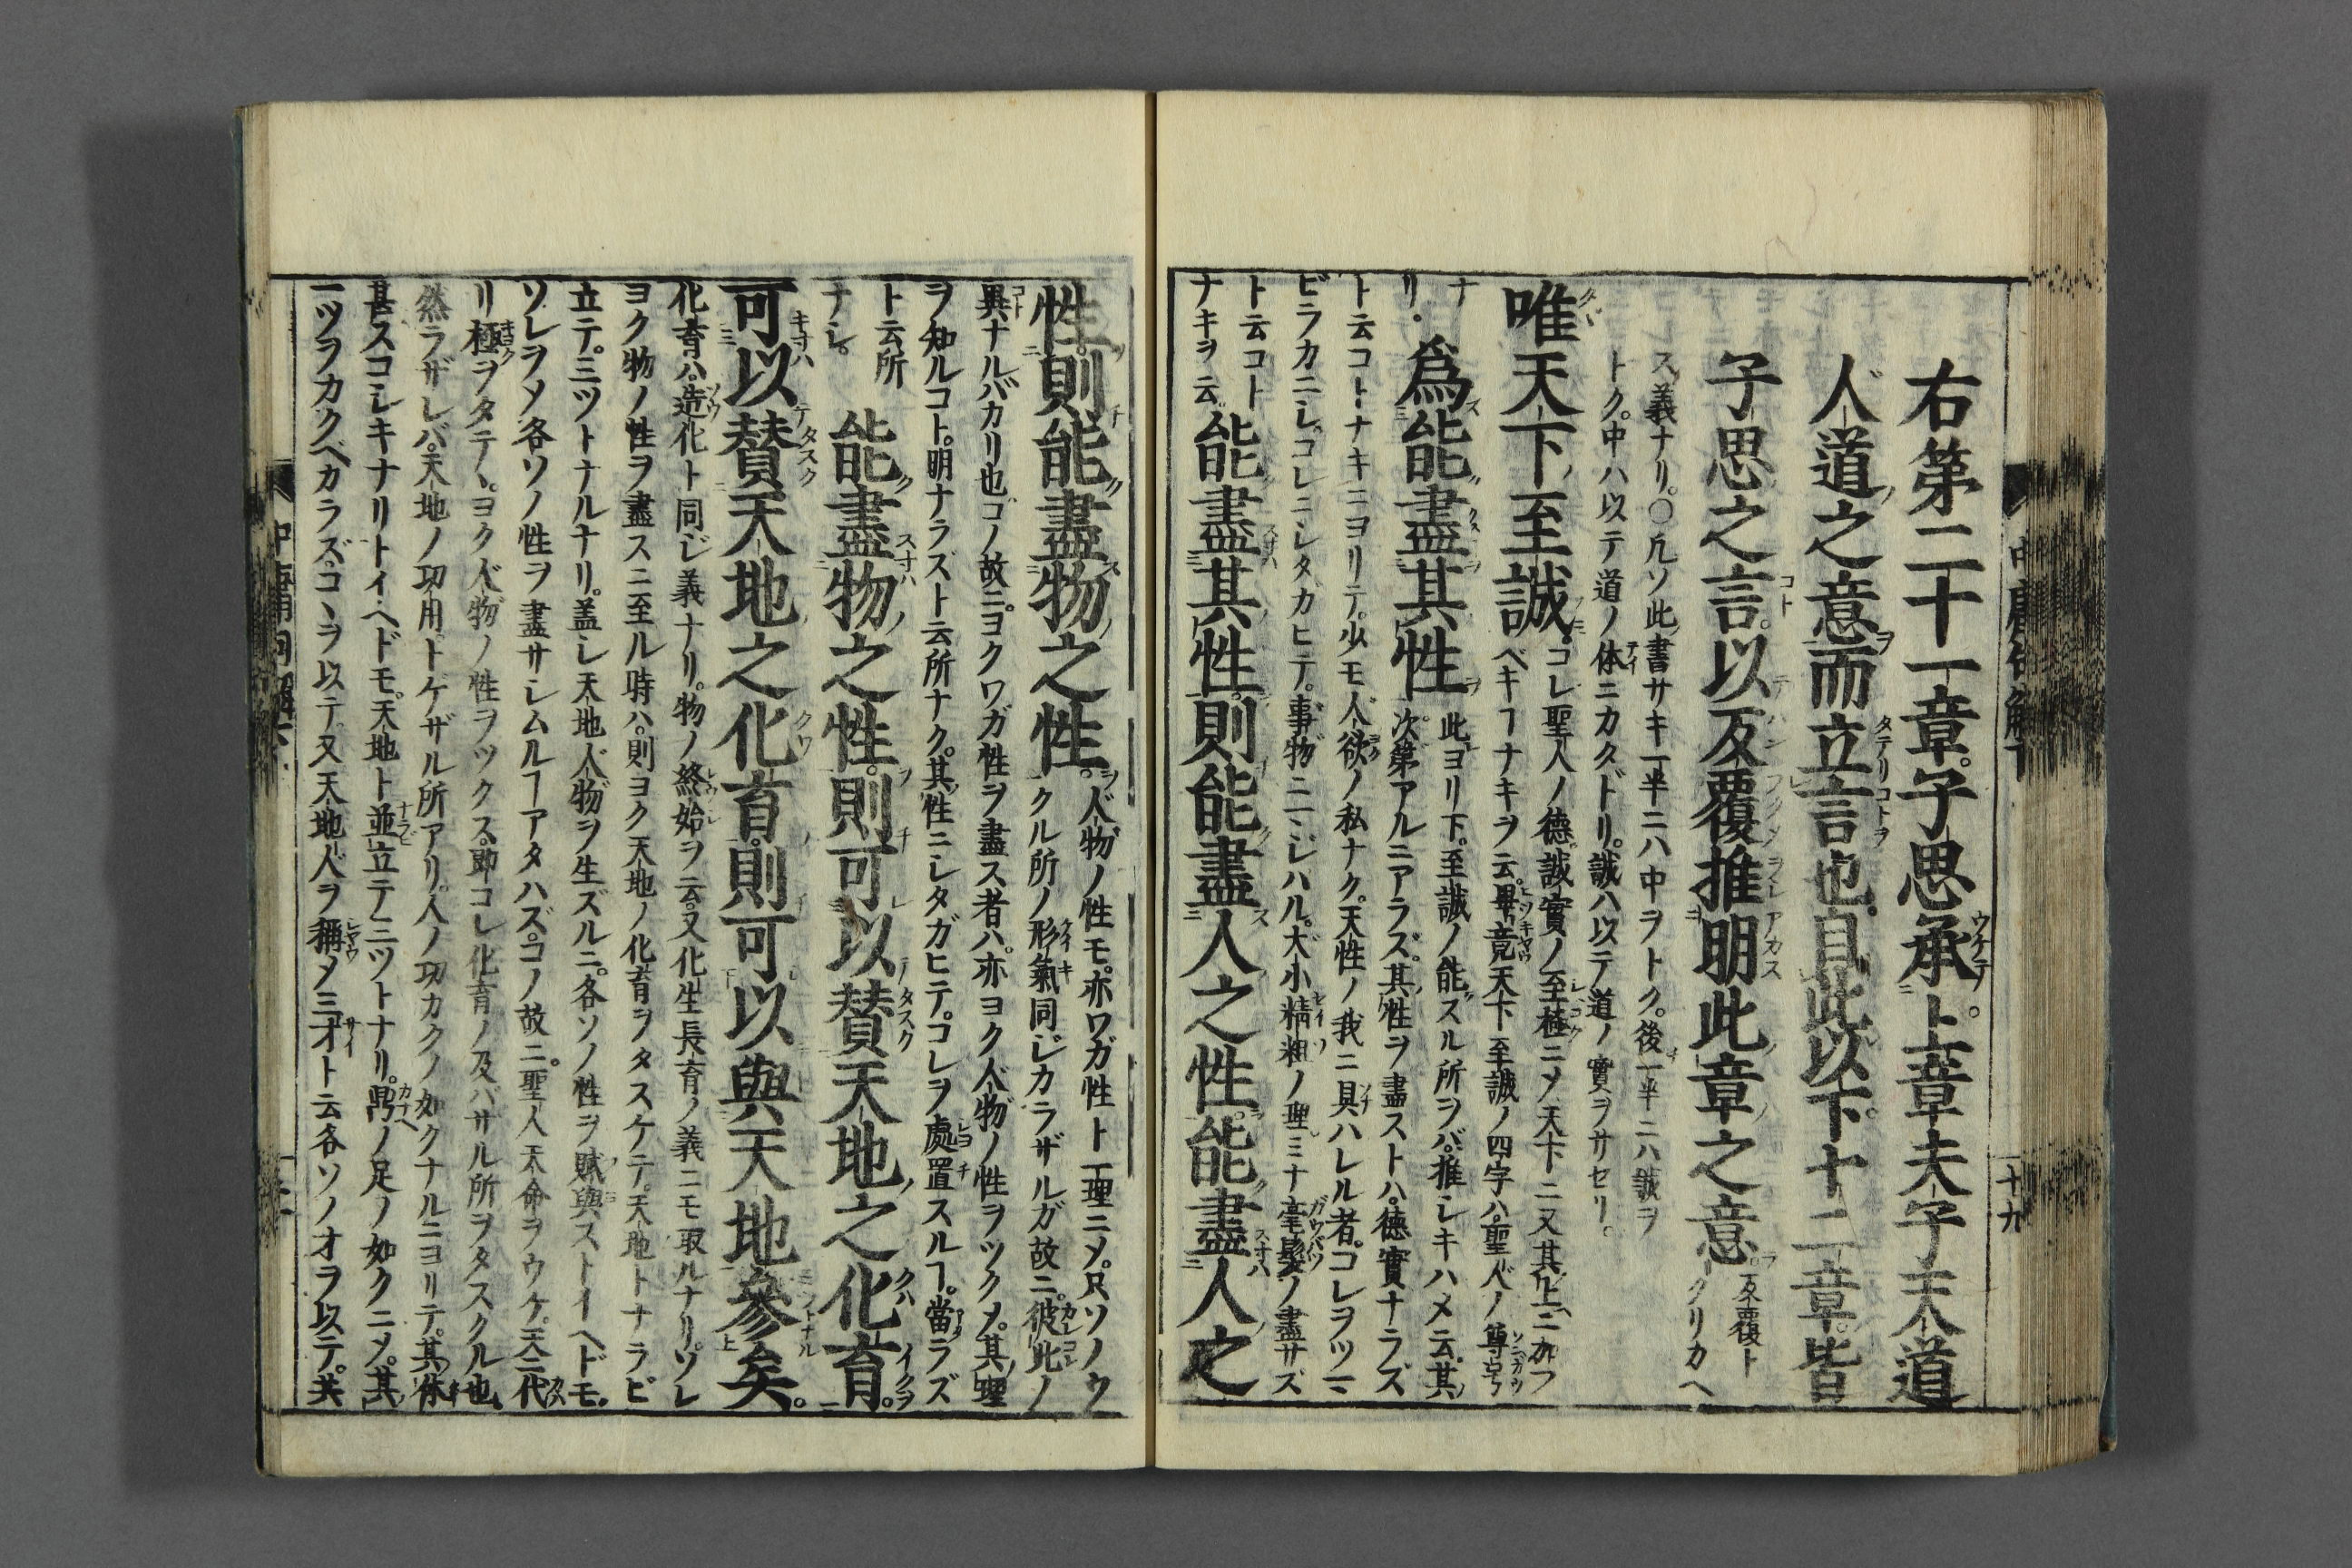 右第二十一章。子思承上章夫子天道
人道之意而立言也。自此以下十二章。皆
子思之言。以反覆推明此章之意。反覆ト
クリカヘ
ス義ナリ。○凡ソ此書サキ一半ニハ中ヲトク。後一半ニハ誠ヲ
トク。中ハ以テ道ノ体ニカクドリ。誠ハ以テ道ノ實ヲサセリ。
唯天下至誠。コレ聖人ノ德。誠實ノ至極ニメ天下ニ又其上ニカフ
ベキヿナキヲ云。畢竟天下至誠ノ四字ハ。聖人ノ尊号
ナ
リ。
爲能盡其性
此ヨリ下。至誠ノ能スル所ヲバ。推シキハメ云。其
次第アルニアラズ。其性ヲ盡ストハ。德實ナラズ
ト云コトナキニヨリテ。少モ人欲ノ私ナク。天性ノ我ニ具ハレル者。コレヲツマ
ビラカニシ。コレニシタカヒテ。事物ニマジハル。大小精粗ノ理ミナ毫髮ノ盡サズ
ト云コト
ナキヲ云。
能盡其性。則能盡人之性。能盡人之
性。則能盡物之性。人物ノ性モ。亦ワガ性ト一理ニメ。只ソノウ
クル所ノ形氣同ジカラザルガ故ニ。彼此ノ
異ナルバカリ也。コノ故ニ。ヨクワガ性ヲ盡ス者ハ。亦ヨク人物ノ性ヲツクメ。其理
ヲ知ルコト。明ナラズト云所ナク。其性ニシタガヒテ。コレヲ處置スルヿ。當ラズ
ト云所
ナシ。
能盡物之性。則可以贊天地之化育。
可以贊天地之化育。則可以與天地參矣。
化育ハ。造化ト同ジ義ナリ。物ノ終始ヲ云。又化生長育ノ義ニモ取ルナリ。ソレ
ヨク物ノ性ヲ盡スニ至ル時ハ。則ヨク天地ノ化育ヲタスケテ。天地トナラビ
立テ。三ツトナルナリ。蓋シ天地人物ヲ生ズルニ。各ソノ性ヲ賦與ストイヘドモ。
ソレヲメ各ソノ性ヲ盡サシムルヿアタハズ。コノ故ニ。聖人天命ヲウケ。天ニ代
リ極ヲタテヽ。ヨク人物ノ性ヲツクス。即コレ化育ノ及バサル所ヲタスクル也。
然ラザレバ。天地ノ功用トゲザル所アリ。人ノ功カクノ如クナルニヨリテ。其体
甚スコシキナリトイヘドモ。天地ト並立テ三ツトナリ。鼎ノ足ノ如クニメ。其
一ツヲカクベカラズ。コヽヲ以テ。又天地人ヲ稱メ三才ト云各ソノオヲ以テ。共
十九